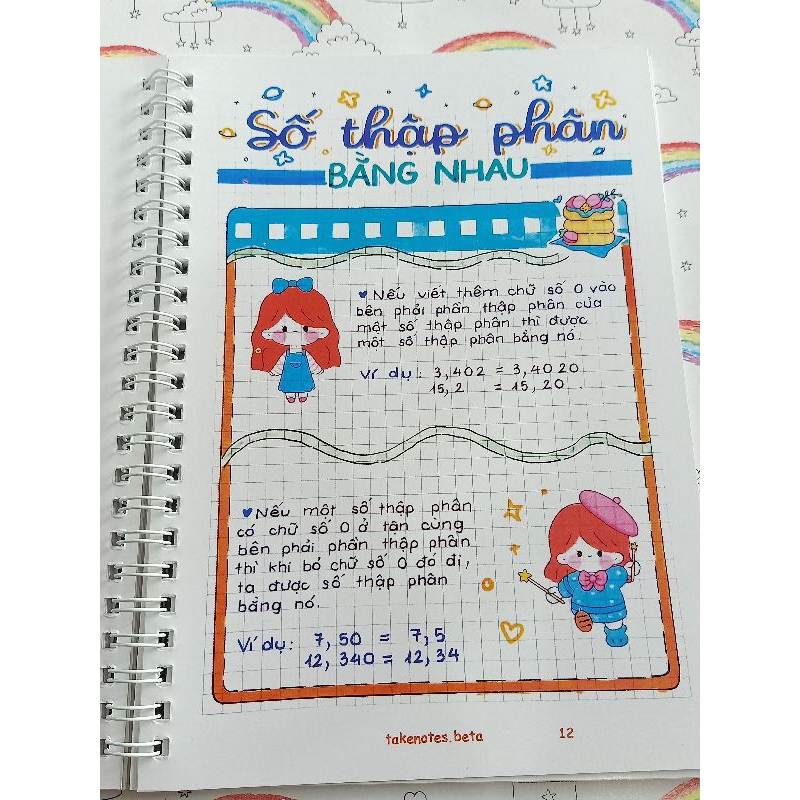 Số thập phân
BẰNG NHAU
Nếu viết thêm chữ số 0 vào
bên phải phần thập phân của
một số thập phân thì được
một số thập phân bằng nó.
Ví dụ: 3,402 = 3,4020
15,2 = 15,20
Nếu một số thập phân
có chữ số 0 ở tận cùng
bên phải phần thập phân
thì khi bỏ chữ số 0 đó đi,
ta được số thập phân
bằng nó.
Ví dụ: 7,50 = 7,5
12,340 = 12,34
takenotes.beta 12